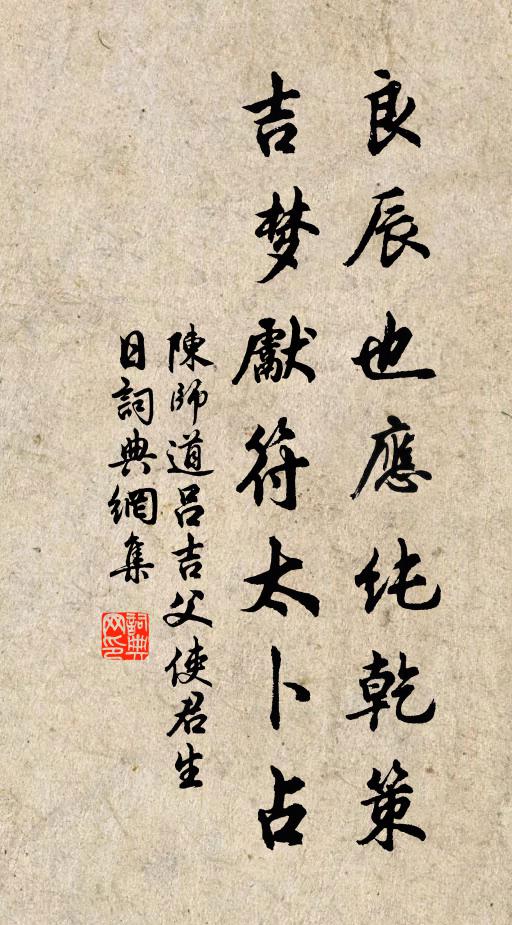 良辰也應纯乾策
吉梦獻符太卜占
陳師道吕吉父使君生
日詞典網集
詞典
网印